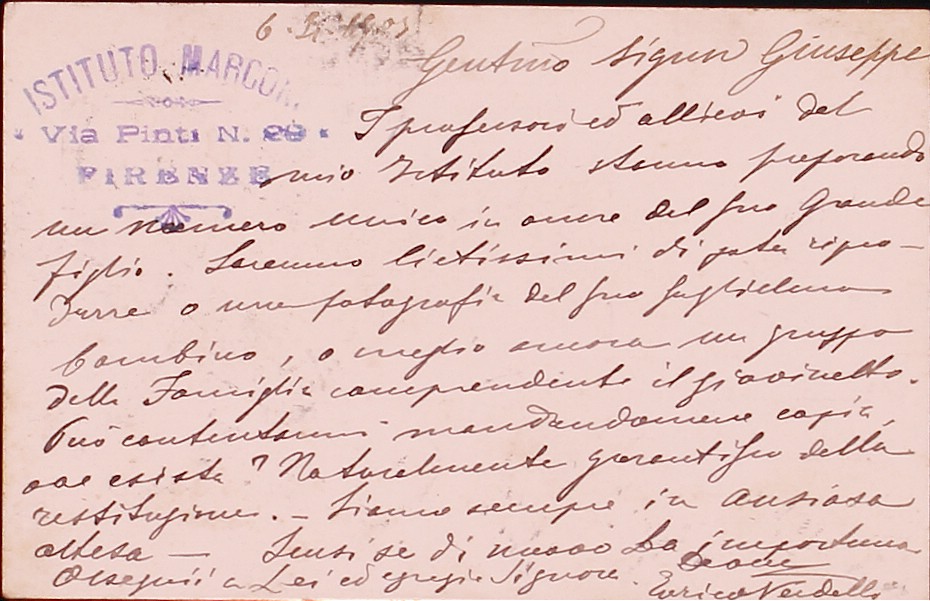 6.
Gentmo Signor Giuseppe
ISTITUTO MARCONI
Via Pinti N. 29
FIRENZE
I professori ed allievi del
mio Istituto stanno preparando
un numero unico in onore del suo Grande
figlio. Saremmo lietissimi di poter ripro-
durre o una fotografia del suo Guglielmo
bambino, o meglio ancora un gruppo
della Famiglia comprendente il giovinetto.
Può contentarmi mandandomene copia,
ove esista? Naturalmente garantisco della
restituzione. - Siamo sempre in ansiosa
attesa — Scusi se di nuovo La importuno
Ossequii a Lei ed egregia Signora.
Enrico